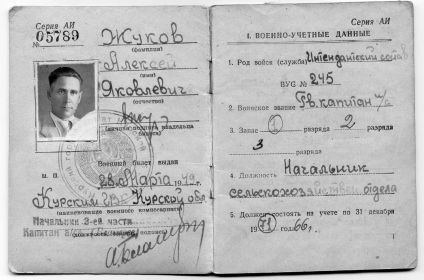 Серия АИ
№ 05789
Жуков
(фамилия)
Алексей
(имя)
Яковлевич
(отчество)
(личная подпись владельца билета)
Военный билет выдан
М. П.
28 Марта 1949 г.
Курским ГВК Курской обл
(наименование военного комиссариата)
Начальник 2-ей части
Капитан а/с
Серия АИ
I. ВОЕННО-УЧЕТНЫЕ ДАННЫЕ
1. Род войск (служба) Интендантский состав
ВУС № 245
2. Воинское звание Гв. капитан и/с
3. Запас 1 разряда 2 разряда
3 разряда
4. Должность Начальник
сельскохозяйствен. отдела
5. Должен состоять на учете по 31 декабря
1971 год. 66 г.